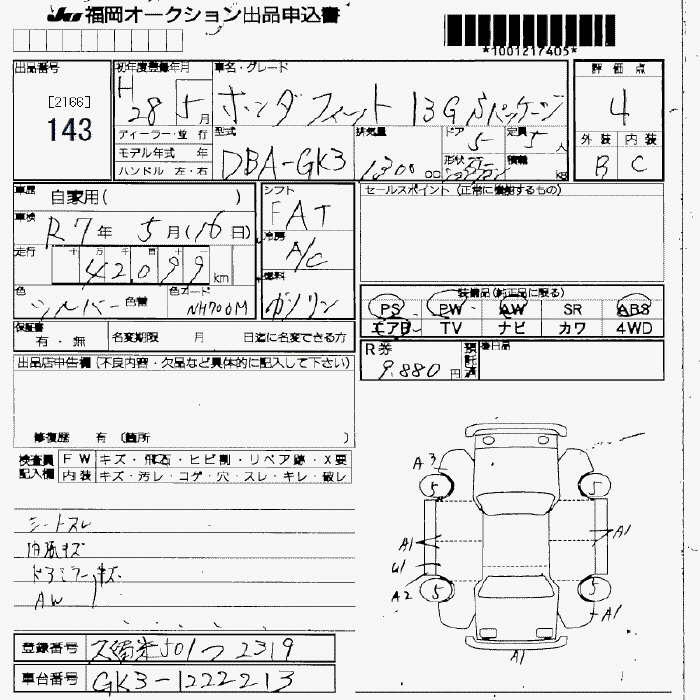 JU 福岡オークション出品申込書
*1001217405*
出品番号
[2166]
143
初年度登録年月
H 28 5 月
ディーラー・並 行
モデル年式 年
ハンドル 左・右
車名・グレード
ホンダ フィット 13G Sパッケージ
型式
DBA-GK3
排気量
1300 cc
ドア
5
定員
5 人
形状
積載
kg
評 価 点
4
外 装 内 装
B C
車歴
自家用( )
車検
R7 年 5 月(16 日)
走行
十 万 千 百 十
42099 km
色
シルバー 色替
色コード
NH700M
シフト
FAT
冷房
A/C
燃料
ガソリン
セールスポイント (正常に機能するもの)
装備品 (純正品に限る)
PS PW AW SR ABS
エアB TV ナビ カワ 4WD
保証書
有・無
名変期限 月 日迄に名変できる方
R券
9,880 円
預託済
後日品
出品店申告欄 (不良内容・欠品など具体的に記入して下さい)
修復歴 有 〔箇所 〕
検査員
記入欄
FW キズ・飛石・ヒビ割・リペア跡・X要
内装 キズ・汚レ・コゲ・穴・スレ・キレ・破レ
シートスレ
内張キズ
ドアミラーキズ
AW
A3
5
5
A1
A1
U1
A2
5
5
A1
A1
登録番号
久留米501つ2319
車台番号
GK3-1222213